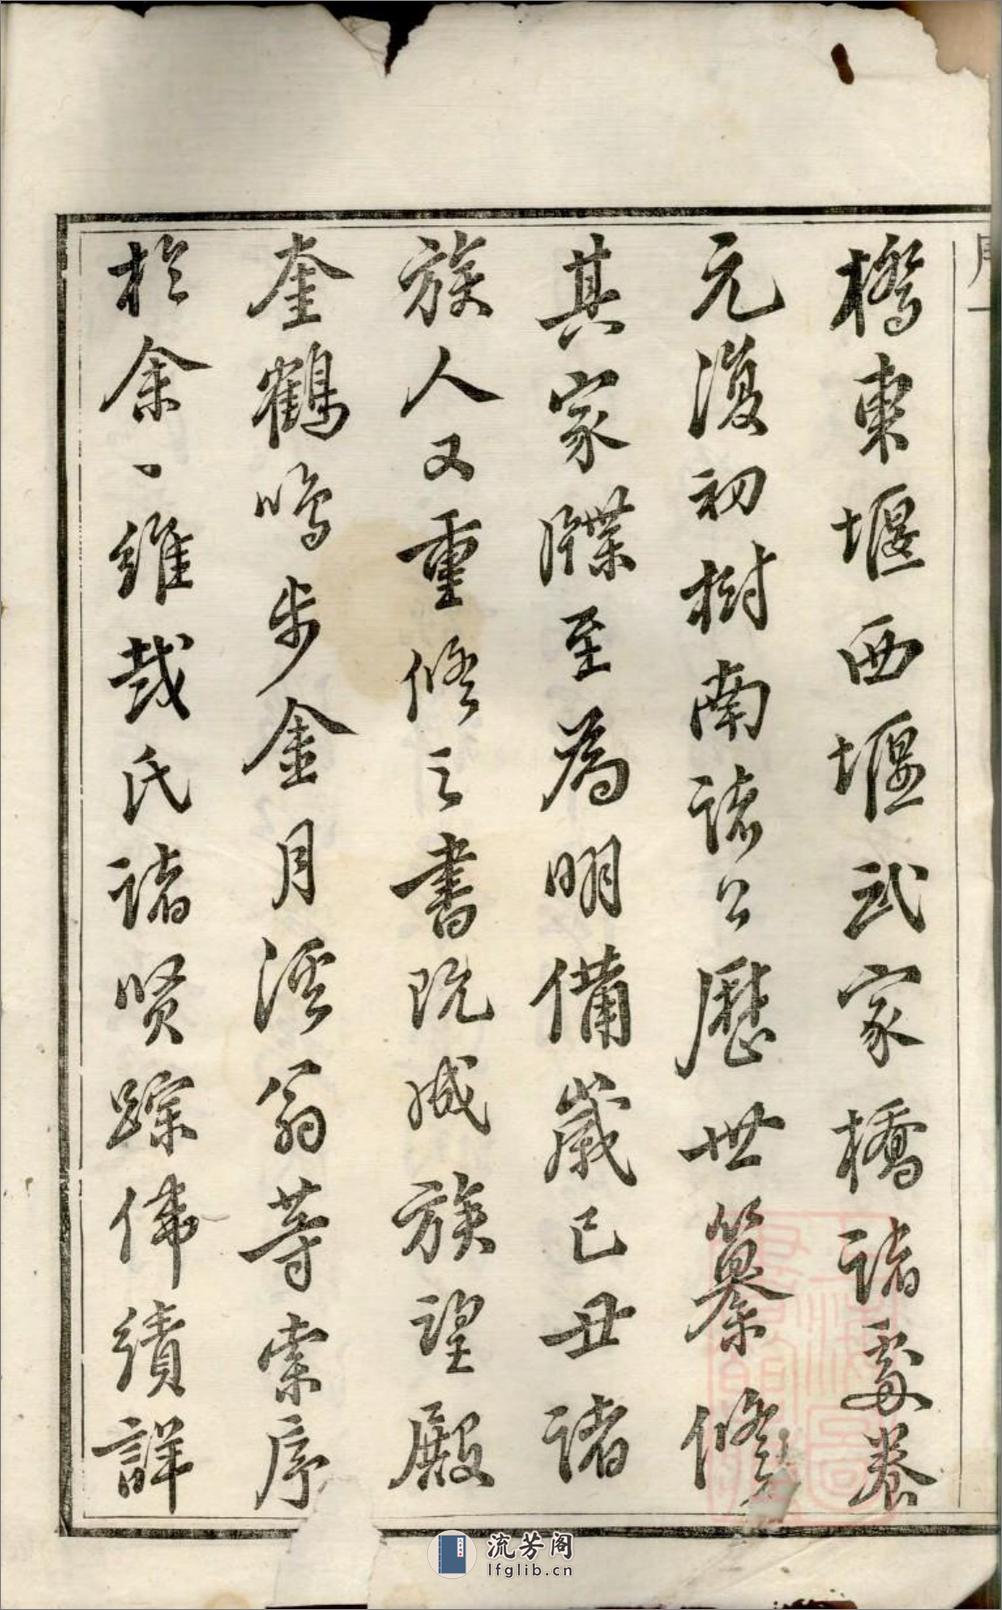 橋東堰西堰武家橋諸處養
元復初樹南諸公歷世纂修
其家牒至為明備歲己丑諸
族人又重修之書既成族望殿
奎鶴鳴步金月溪翁等索序
於余、維裁氏諸賢蹤偉績詳
流芳阁
lfglib.cn